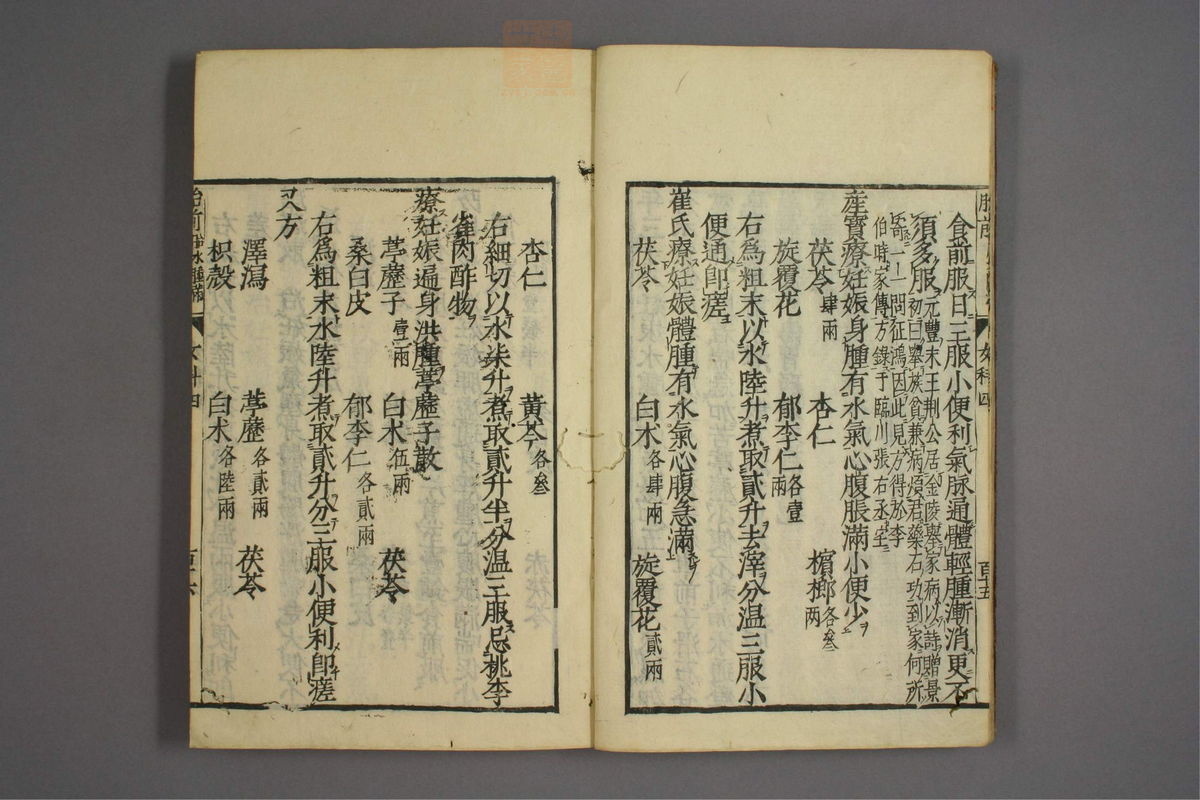 食前服日三服小便利氣脉通體輕腫漸消更不
須多服元豐末王荆公居金陵擧家病以詩贈景
初曰擧族貧兼病煩君藥石功到家何所
寄一一問征鴻因此見方得於李
伯時家傳方錄于臨川張右丞宅
産寶療妊娠身腫有水氣心腹脹滿小便少
茯苓肆兩 杏仁 檳榔各叁兩
旋覆花 郁李仁各壹兩
右爲粗末以水陸升煮取貳升去滓分温三服小
便通卽瘥
崔氏療妊娠體腫有水氣心腹急滿
茯苓 白朮各肆兩 旋覆花貳兩
女科四
百十五
杏仁 黃芩各叁
右細切以水柒升煮取貳升半分温三服忌桃李
雀肉酢物
療妊娠遍身洪腫葶藶子散
葶藶子壹兩 白朮伍兩 茯苓
桑白皮 郁李仁各貳兩
右爲粗末水陸升煮取貳升分三服小便利卽瘥
又方
澤瀉 葶藶各貳兩 茯苓
枳殻 白朮各陸兩